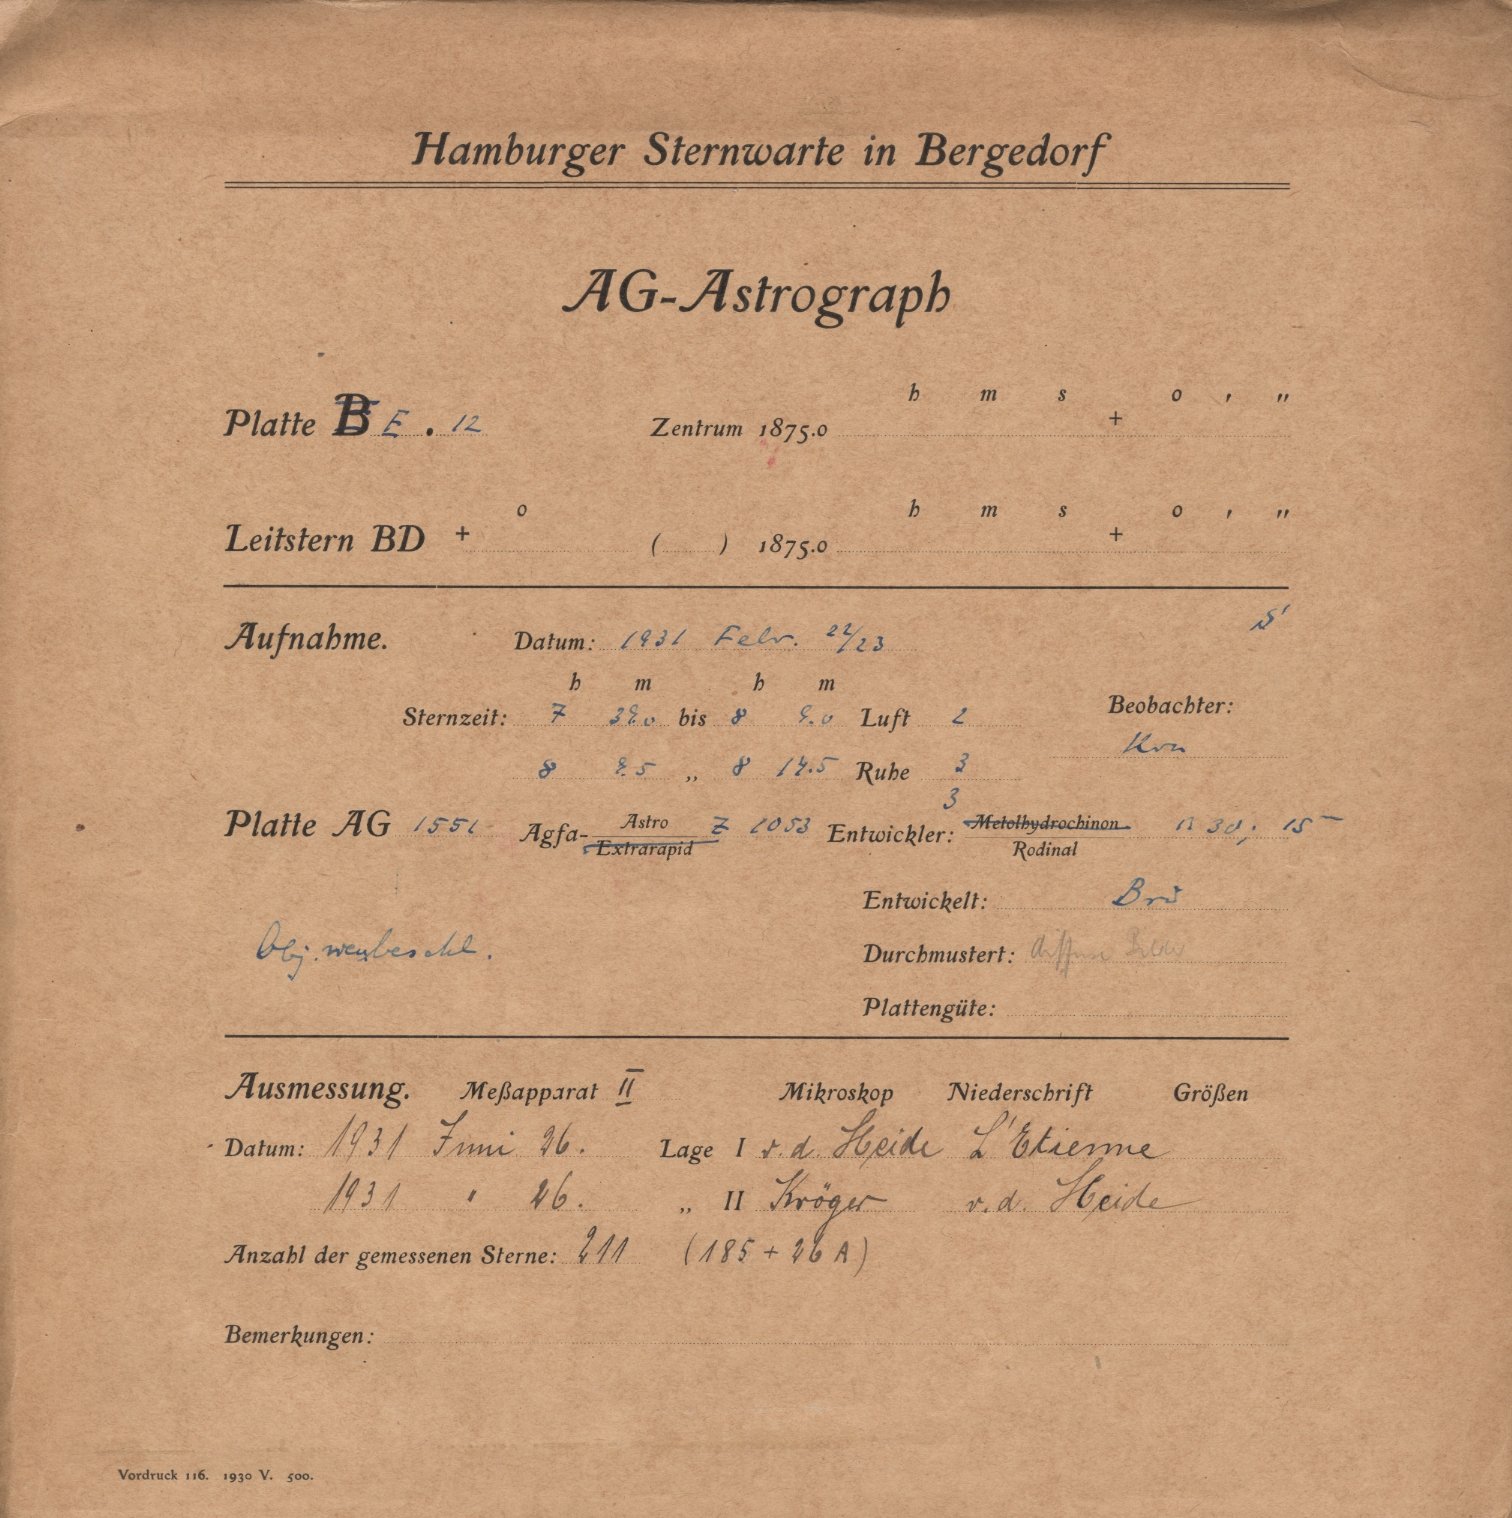 Hamburger Sternwarte in Bergedorf
AG-Astrograph
h m s o ' "
Platte B E . 12 Zentrum 1875.0 +
o h m s o ' "
Leitstern BD + ( ) 1875.0 +
Aufnahme. Datum: 1931 Febr. 22/23
h m h m
Sternzeit: 7 bis 8 Luft 2 Beobachter:
8 „ 8 Ruhe 3
3
Platte AG 1551 Agfa- Astro Z 1053 Entwickler: Metolhydrochinon
Extrarapid Rodinal
Entwickelt: Brü
Obj. Durchmustert: diffuse Bilder
Plattengüte:
Ausmessung. Meßapparat II Mikroskop Niederschrift Größen
Datum: 1931 Juni 26. Lage I v. d. Heide L'Etienne
1931 " 26. „ II Kröger v. d. Heide
Anzahl der gemessenen Sterne: 211 (185 + 26 A)
Bemerkungen:
Vordruck 116. 1930 V. 500.